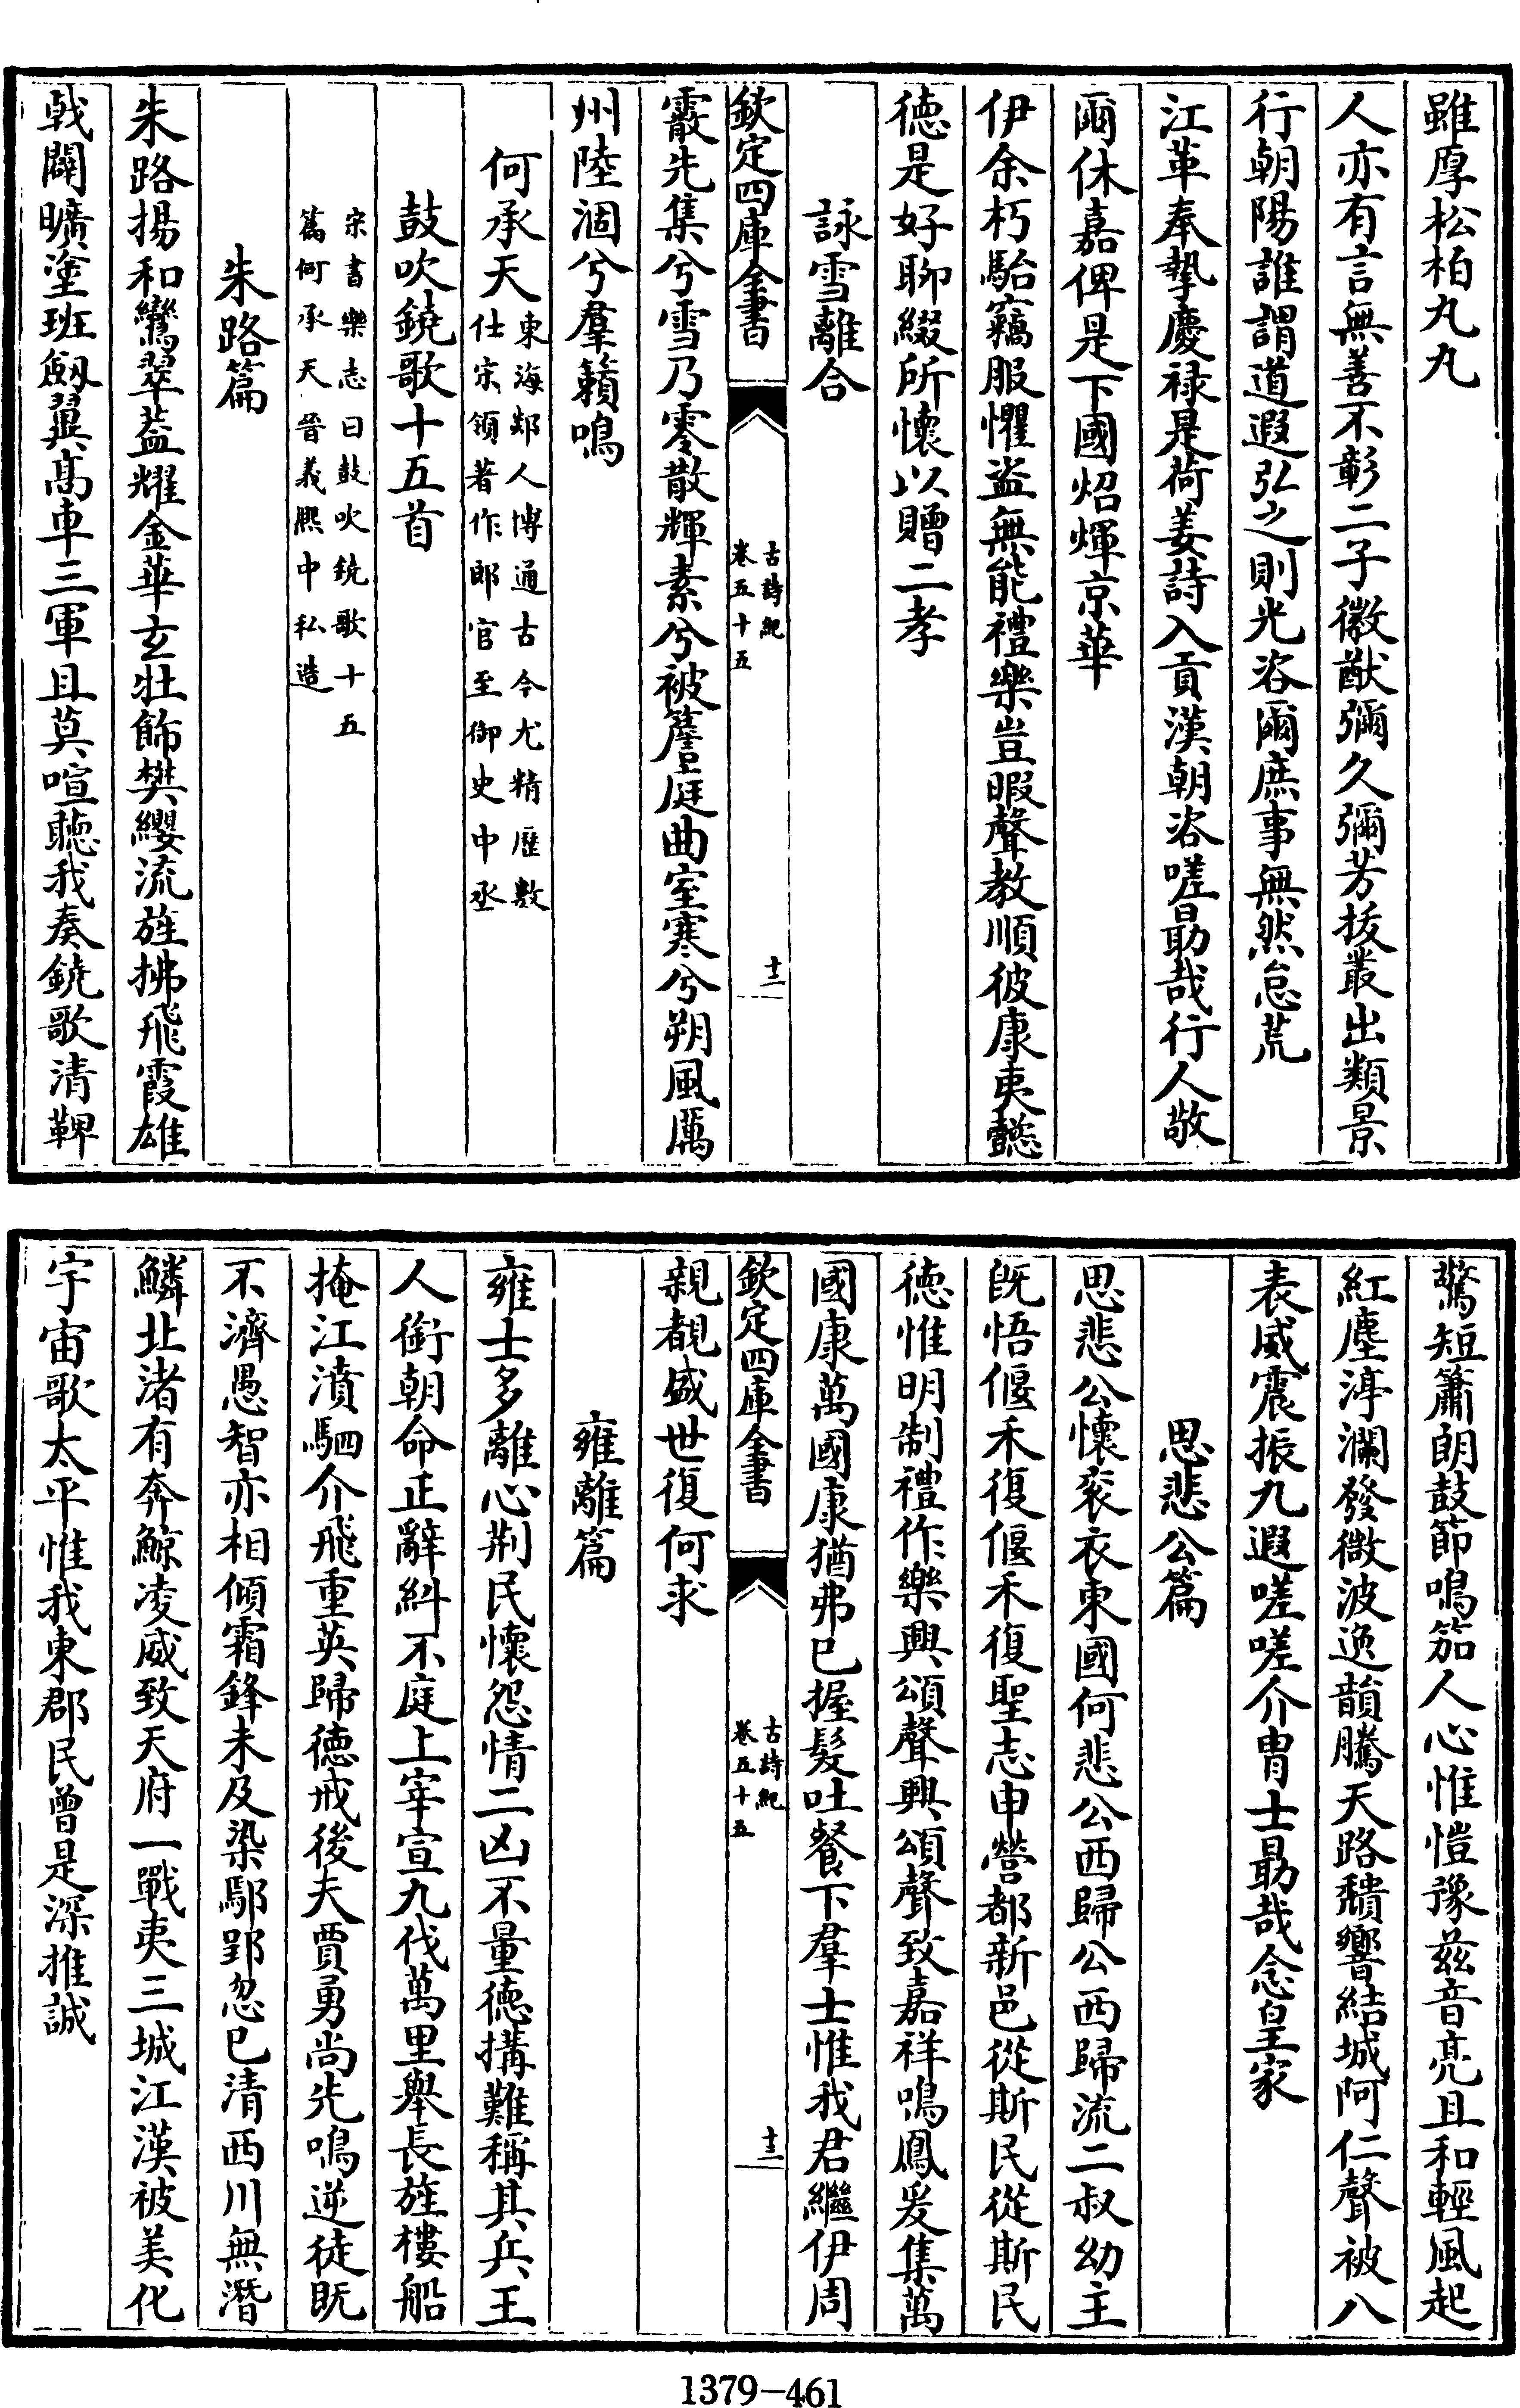 雖厚松柏丸丸
人亦有言無善不彰二子徽猷彌久彌芳拔叢出類景
行朝陽誰謂道遐弘之則光咨爾庶事無然怠荒
江革奉摯慶禄是荷姜詩入貢漢朝咨嗟勗哉行人敬
爾休嘉俾是下國炤煇京華
伊余朽駘竊服懼盜無能禮樂豈暇聲教順彼康夷懿
德是好聊綴所懷以贈二孝
詠雪離合
欽定四庫全書
古詩紀
卷五十五
十二
霰先集兮雪乃零散輝素兮被簷庭曲室寒兮朔風厲
州陸涸兮羣籟鳴
何承天東海郯人博通古今尤精歷數
仕宋領著作郎官至御史中丞
鼓吹鐃歌十五首
宋書樂志曰鼓吹鐃歌十五
篇何承天晉義熙中私造
朱路篇
朱路揚和鸞翠葢耀金華玄壮飾樊纓流旌拂飛霞雄
戟闢曠塗班劔翼髙車三軍且莫喧聽我奏鐃歌清鞞
驚短簫朗鼓節鳴笳人心惟愷豫兹音亮且和輕風起
紅塵渟瀾發微波逸韻騰天路頽響結城阿仁聲被八
表威震振九遐嗟嗟介胄士勗哉念皇家
思悲公篇
思悲公懷衮衣東國何悲公西歸公西歸流二叔幼主
既悟偃禾復偃禾復聖志申營都新邑從斯民從斯民
德惟明制禮作樂興頌聲興頌聲致嘉祥鳴鳳爰集萬
國康萬國康猶弗已握髮吐餐下羣士惟我君繼伊周
欽定四庫全書
古詩紀
卷五十五
十三
親覩盛世復何求
雍離篇
雍士多離心荆民懷怨情二凶不量德搆難稱其兵王
人銜朝命正辭糾不庭上宰宣九伐萬里舉長旌樓船
掩江濆駟介飛重英歸德戒後夫賈勇尚先鳴逆徒既
不濟愚智亦相傾霜鋒未及染鄢郢忽已清西川無潛
鱗北渚有奔鯨凌威致天府一戰夷三城江漢被美化
宇宙歌太平惟我東郡民曾是深推誠
1379—461